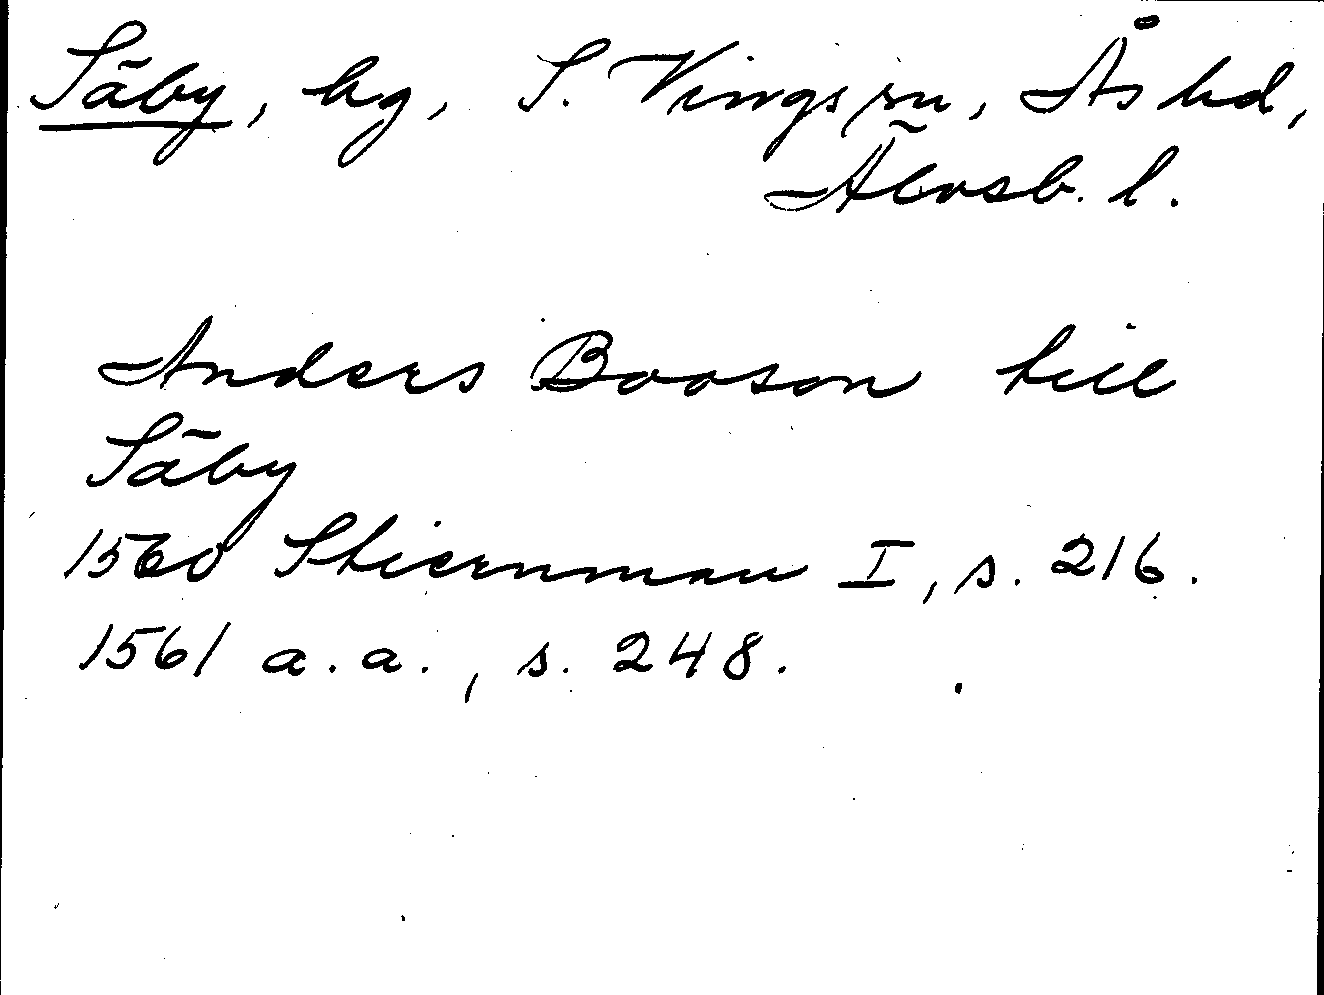 Säby, hg, S. Vings sn, Ås hd,
Älvsb. l.
Anders Booson till
Säby
1560 Stiernman I, s. 216.
1561 a.a., s. 248.